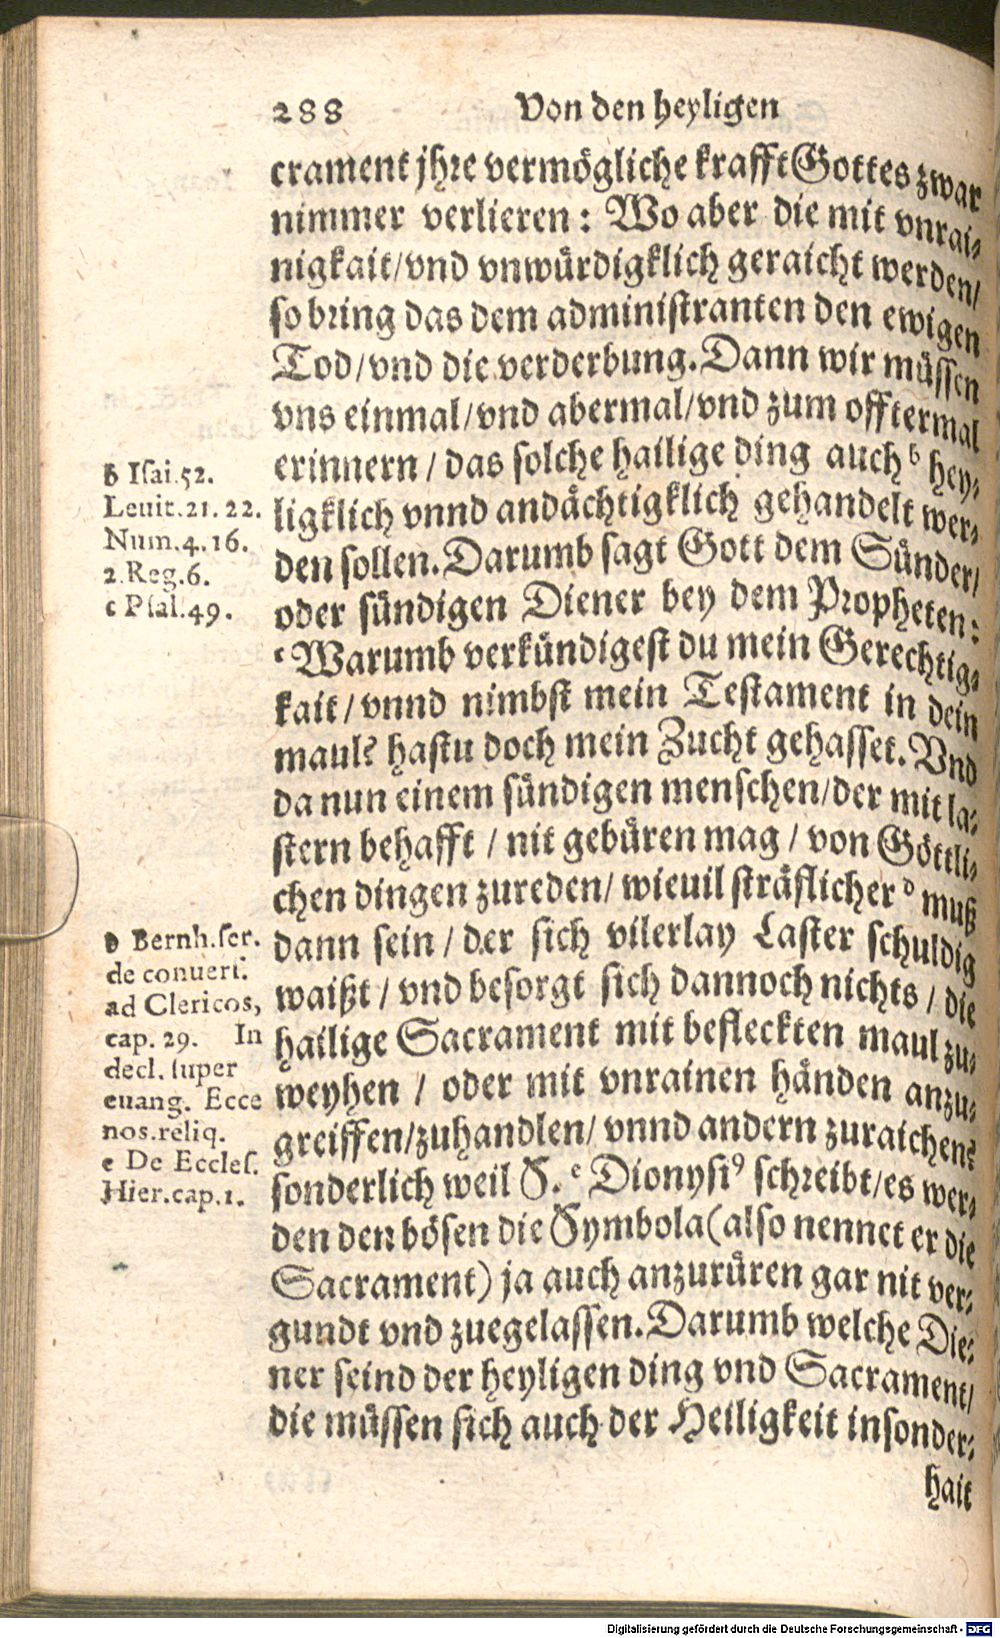 288 Von den heyligen
crament jhre vermögliche krafft Gottes zwar
nimmer verlieren: Wo aber die mit vnrai-
nigkait/vnd vnwürdigklich geraicht werden/
so bring das dem administranten den ewigen
Tod/vnd die verderbung. Dann wir müssen
vns einmal/vnd abermal/vnd zum offtermal
erinnern/das solche hailige ding auch b hey-
ligklich vnnd andächtigklich gehandelt wer-
den sollen. Darumb sagt Gott dem Sünder/
oder sündigen Diener bey dem Propheten:
c Warumb verkündigest du mein Gerechtig-
kait/vnnd nimbst mein Testament in dein
maul? hastu doch mein Zucht gehasset. Vnd
da nun einem sündigen menschen/der mit la-
stern behafft/nit gebüren mag/von Göttli-
chen dingen zureden/wieuil sträflicher d muß
dann sein/der sich vilerlay Laster schuldig
waißt/vnd besorgt sich dannoch nichts/die
hailige Sacrament mit befleckten maul zu-
weyhen/oder mit vnrainen händen anzu-
greiffen/zuhandlen/vnnd andern zuraichen?
sonderlich weil S. e Dionysi⁹ schreibt/es wer-
den den bösen die Symbola (also nennet er die
Sacrament) ja auch anzurüren gar nit ver-
gundt vnd zuegelassen. Darumb welche Die-
ner seind der heyligen ding vnd Sacrament/
die müssen sich auch der Heiligkeit insonder-
hait
b Isai.52.
Leuit.21. 22.
Num.4.16.
2.Reg.6.
c Psal.49.
d Bernh.ser.
de conuers.
ad Clericos,
cap. 29. In
decl. super
euang. Ecce
nos.reliq.
e De Eccles.
Hier.cap.1.
Digitalisierung gefördert durch die Deutsche Forschungsgemeinschaft - DFG